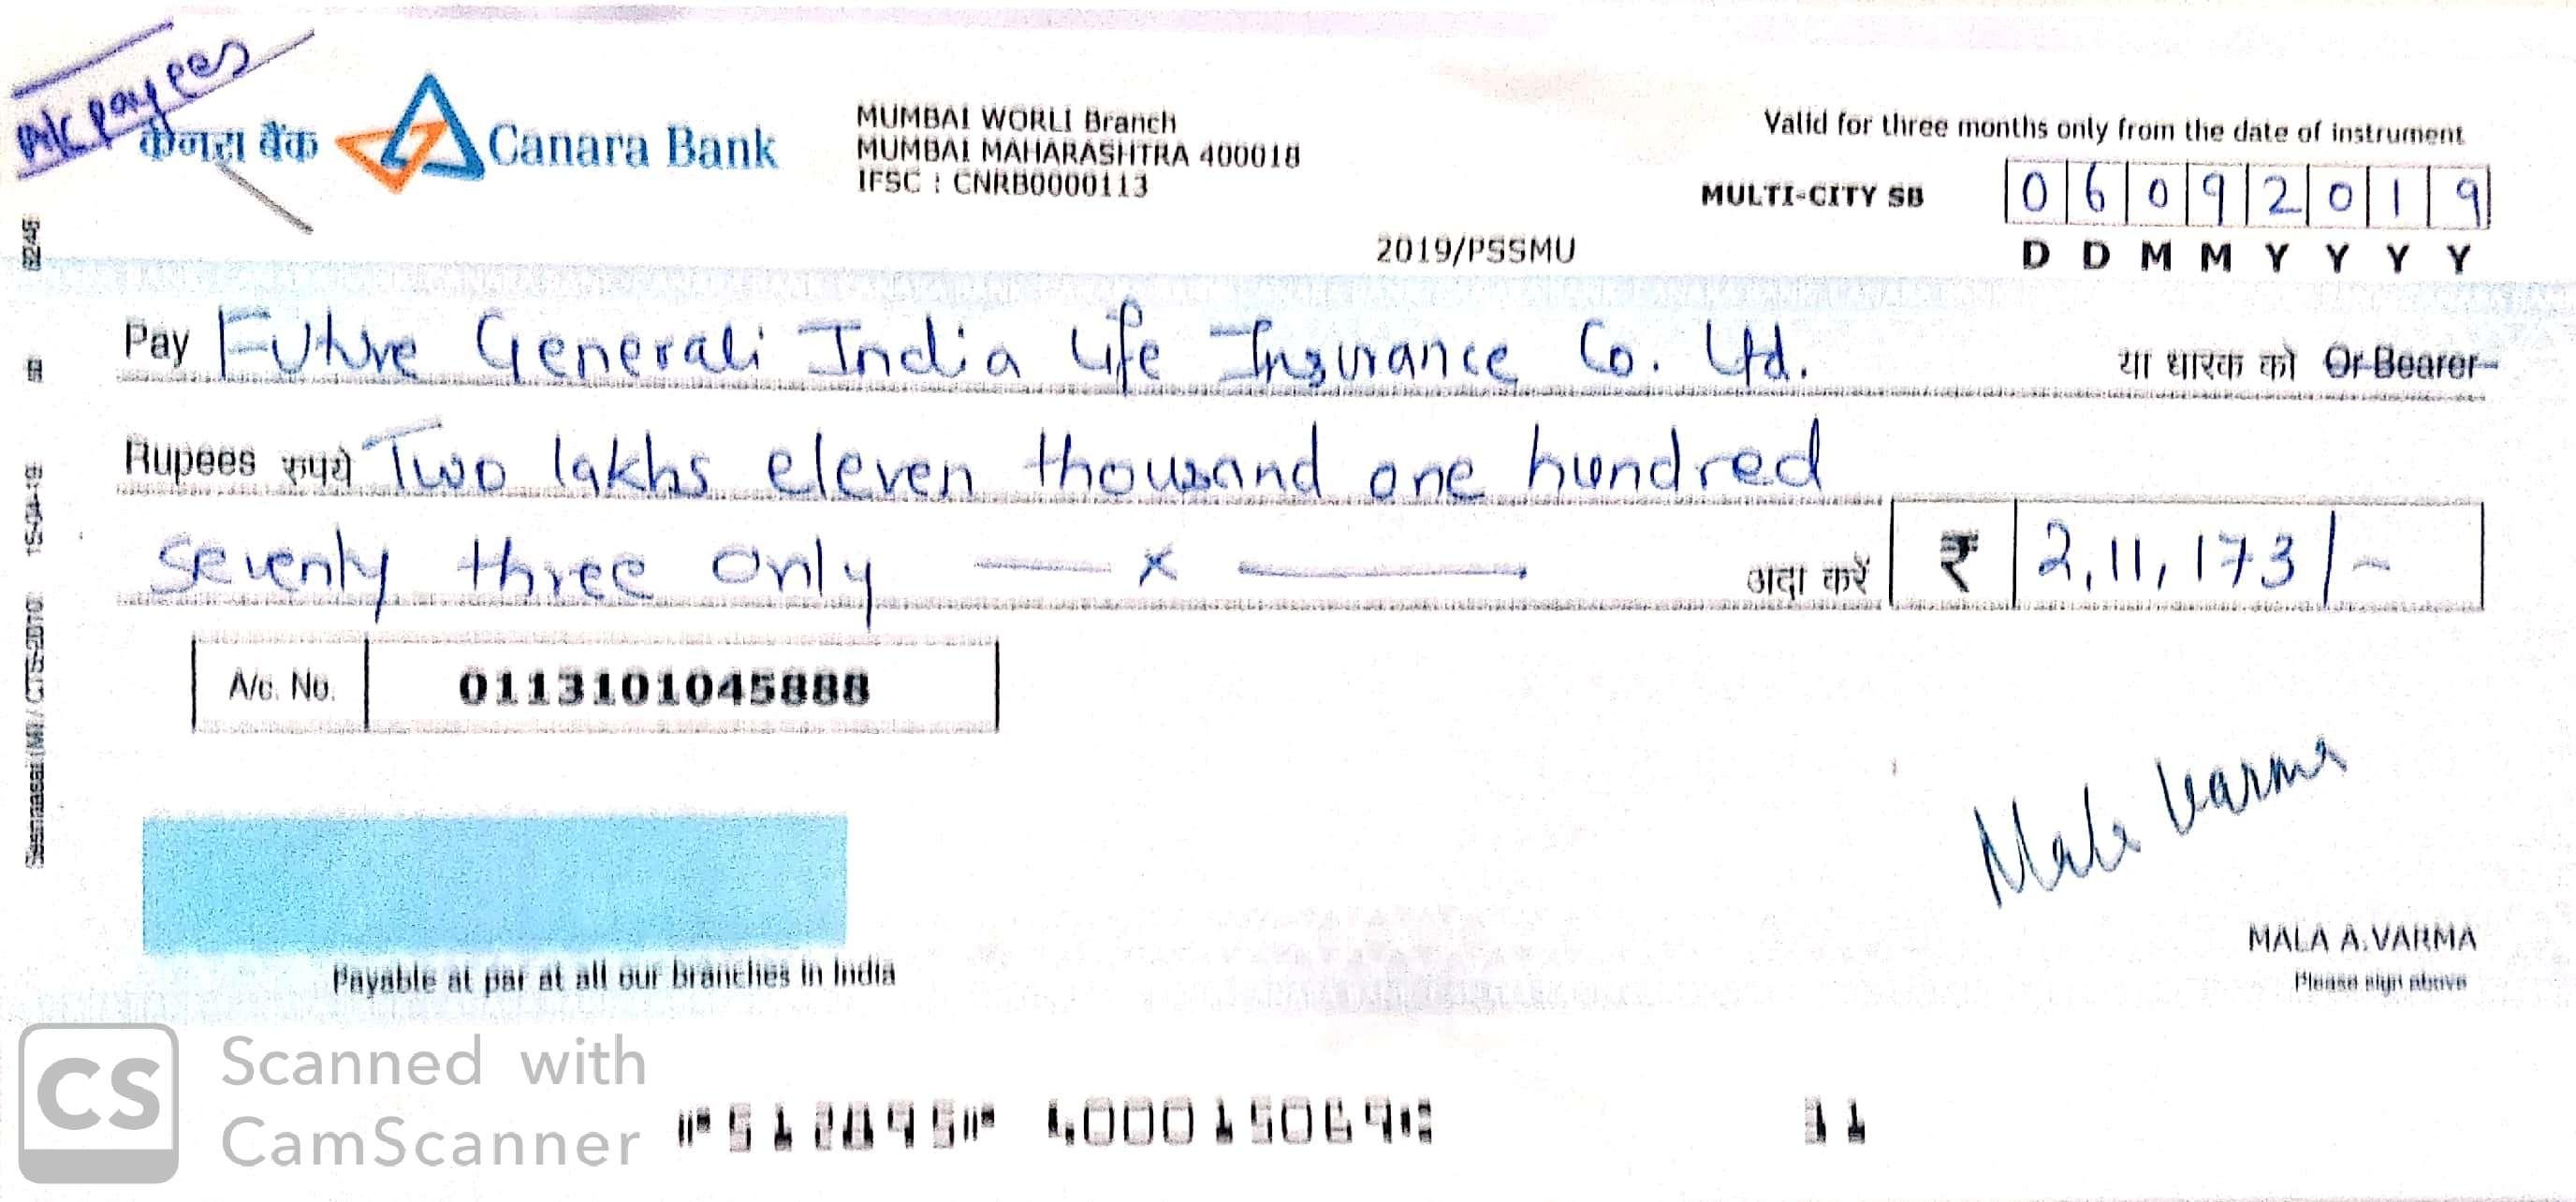 A/c payees
केनरा बैंक Canara Bank
MUMBAI WORLI Branch
MUMBAI MAHARASHTRA 400018
IFSC : CNRB0000113
Valid for three months only from the date of instrument
MULTI-CITY SB 06092019
D D M M Y Y Y Y
2019/PSSMU
Pay Future Generali India Life Insurance Co. Ltd. या धारक को Or Bearer
Rupees रुपये Two lakhs eleven thousand one hundred
seventy three only — x — अदा करें ₹ 2,11,173/-
A/c. No. 0113101045888
Mala Varma
MALA A.VARMA
Please sign above
Payable at par at all our branches in India
CS Scanned with
CamScanner
400015069 11